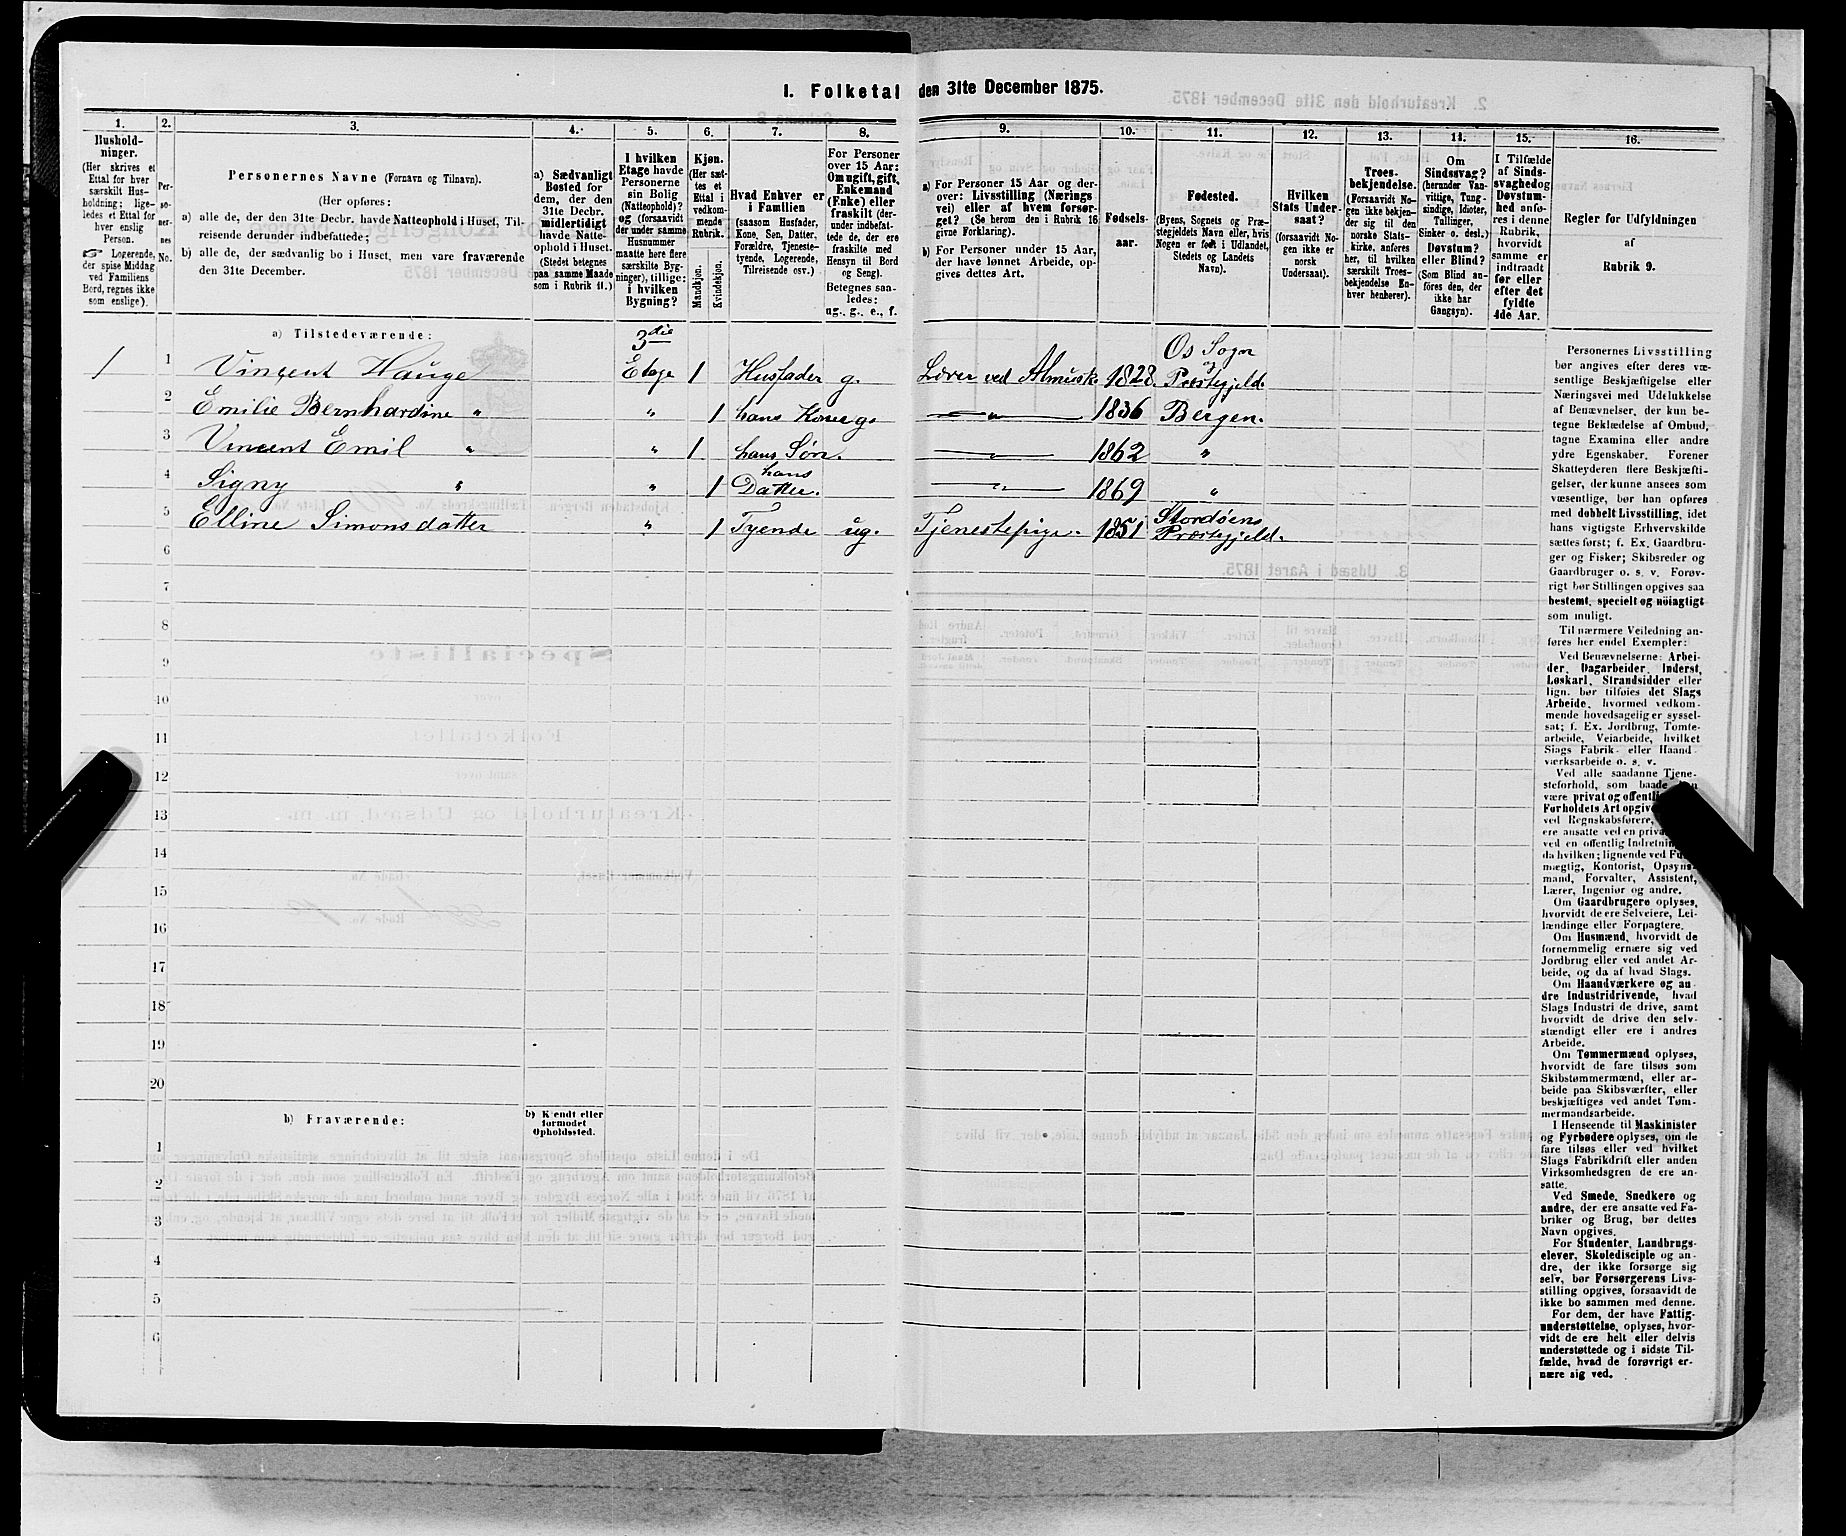 I. Folketal den 31te December 1875.
1. 2. 3. 4. 5. 6. 7. 8. 9. 10. 11. 12. 13. 14. 15. 16.
Hushold-
ninger.
(Her skrives et
Ettal for hver
særskilt Hus-
holdning; lige-
ledes et Ettal for
hver enslig
Person.
☞ Logerende,
der spise Middag
ved Familiens
Bord, regnes ikke
som enslige).
Per-
so-
ner-
nes
No.
Personernes Navne (Fornavn og Tilnavn).
(Her opføres:
a) alle de, der den 31te Decbr. havde Natteophold i Huset, Til-
reisende derunder indbefattede;
b) alle de, der sædvanlig bo i Huset, men vare fraværende
den 31te December.
a) Sædvanligt
Bosted for
dem, der den
31te Decbr.
midlertidigt
havde Natte-
ophold i Huset.
(Stedet betegnes
paa samme Maade
som i Rubrik 11.)
I hvilken
Etage havde
Personerne
sin Bolig
(Natteophold)?
og (forsaavidt
der under samme
Husnummer
maatte høre flere
særskilte Byg-
ninger), tillige:
i hvilken
Bygning?
Kjøn.
(Her sæt-
tes et
Ettal i
vedkom-
mende
Rubrik.
Mandkjøn.
Kvindekjøn.
Hvad Enhver er
i Familien
(saasom Husfader,
Kone, Søn, Datter,
Forældre, Tjeneste-
tyende, Logerende,
Tilreisende osv.)
For Personer
over 15 Aar:
Om ugift, gift,
Enkemand
(Enke) eller
fraskilt (der-
under indbefat-
tede de, der ere
fraskilte med
Hensyn til Bord
og Seng).
Betegnes saa-
ledes:
ug., g., e., f.
a) For Personer 15 Aar og der-
over: Livsstilling (Nærings
vei) eller af hvem forsør-
get? (Se herom den i Rubrik 16
givne Forklaring).
b) For Personer under 15 Aar,
der have lønnet Arbeide, op-
gives dettes Art.
Fødsels-
aar.
Fødested.
(Byens, Sognets og Præ-
stegjeldets Navn eller, hvis
Nogen er født i Udlandet,
Stedets og Landets
Navn).
Hvilken
Stats Under-
saat?
(forsaavidt No-
gen ikke er
norsk
Undersaat).
Troes-
bekjendelse.
(Forsaavidt No-
gen ikke bekjen-
der sig til den
norske Stats-
kirke, anføres
her, til hvilken
særskilt Troes-
bekjendelse En-
hver henhører).
Om
Sindssvag?
(herunder Van-
vittige, Tung-
sindige, Idioter,
Tullinger,
Sinker o. desl.)
Døvstum?
eller Blind?
(Som Blind an-
føres den, der
ikke har
Gangsyn).
I Tilfælde
af Sinds-
svaghed og
Døvstum-
hed anfø-
res i denne
Rubrik,
hvorvidt
samme er
indtraadt
før eller
efter det
fyldte
4de Aar.
Regler for Udfyldningen
af
Rubrik 9.
a) Tilstedeværende: 3die Os Sogn
1 1 Vincent Hauge Etage 1 Husfader g. Lærer ved Almusk. 1828. og Præstegjeld.
2 Emilie Bernhardine " " 1 hans Kone g. " 1836 Bergen.
3 Vincent Emil " " 1 hans Søn. " 1862 "
4 Signy " " 1 hans Datter. " 1869 "
5 Elline Simonsdatter " 1 Tyende ug. Tjenestepige. 1851 Stordøens Præstegjeld.
6
7
8
9
10
11
12
13
14
15
16
17
18
19
20
b) Fraværende:
b) Kjendt eller
formodet
Opholdssted.
1
2
3
4
5
6
Personernes Livsstilling
bør angives efter deres væ-
sentlige Beskjæftigelse eller
Næringsvei med Udelukkelse
af Benævnelser, der kun be-
tegne Beklædelse af Ombud,
tagne Examina eller andre
ydre Egenskaber. Forener
Skatteyderen flere Beskjæfti-
gelser, der kunne ansees som
væsentlige, bør han opføres
med dobbelt Livsstilling, idet
hans vigtigste Erhvervskilde
sættes først; f. Ex. Gaardbru-
ger og Fisker; Skibsreder og
Gaardbruger o. s. v. Forøv-
rigt bør Stillingen opgives saa
bestemt, specielt og nøiagtigt
som muligt.
Til nærmere Veiledning an-
føres her endel Exempler:
Ved Benævnelserne: Arbei-
der, Dagarbeider, Inderst,
Løskarl, Strandsidder eller
lign. bør tilføies det Slags
Arbeide, hvormed vedkom-
mende hovedsagelig er syssel-
sat; f. Ex. Jordbrug, Tomte-
arbeide, Veiarbeide, hvilket
Slags Fabrik- eller Haand-
værksarbeide o. s. v.
Ved alle saadanne Tjene-
steforhold, som baade
være privat og offentlig
Forholdets Art opgives
ved Regnskabsførere,
ere ansatte ved en privat
ved en offentlig Indretning
da hvilken; lignende ved Fuld-
mægtig, Kontorist, Opsyns-
mand, Forvalter, Assistent,
Lærer, Ingeniør og andre.
Om Gaardbrugere oplyses,
hvorvidt de ere Selveiere, Lei-
lændinge eller Forpagtere.
Om Husmænd, hvorvidt de
fornemmelig ernære sig ved
Jordbrug eller ved andet Ar-
beide, og da af hvad Slags.
Om Haandværkere og an-
dre Industridrivende, hvad
Slags Industri de drive, samt
hvorvidt de drive den selv-
stændigt eller ere i andres
Arbeide.
Om Tømmermænd oplyses,
hvorvidt de fare tilsøs som
Skibstømmermænd, eller ar-
beide paa Skibsværfter, eller
beskjæftiges ved andet Tøm-
mermandsarbeide.
I Henseende til Maskinister
og Fyrbødere oplyses, om de
fare tilsøs eller ved hvilket
Slags Fabrikdrift eller anden
Virksomhedsgren de ere an-
satte.
Ved Smede, Snedkere og
andre, der ere ansatte ved Fa-
briker og Brug, bør dettes
Navn opgives.
For Studenter, Landbrugs-
elever, Skoledisciple og an-
dre, der ikke forsørge sig
selv, bør Forsørgerens Livs-
stilling opgives, forsaavidt de
ikke bo sammen med denne.
For dem, der have Fattig-
understøttelse, oplyses, hvor-
vidt de ere helt eller delvis
understøttede og i sidste Til-
fælde, hvad de forøvrigt er-
nære sig ved.